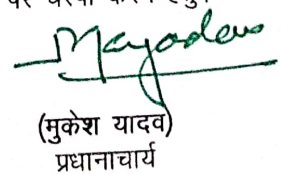 Mayadav
(मुकेश यादव)
प्रधानाचार्य